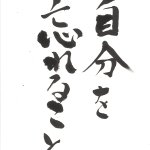 自分を
忘れること